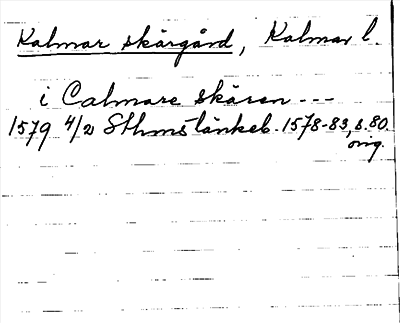 Kalmar skärgård, Kalmar l.
i Calmare skären ---
1579 4/2 Sthms tänkeb. 1578-83, s. 80.
orig.